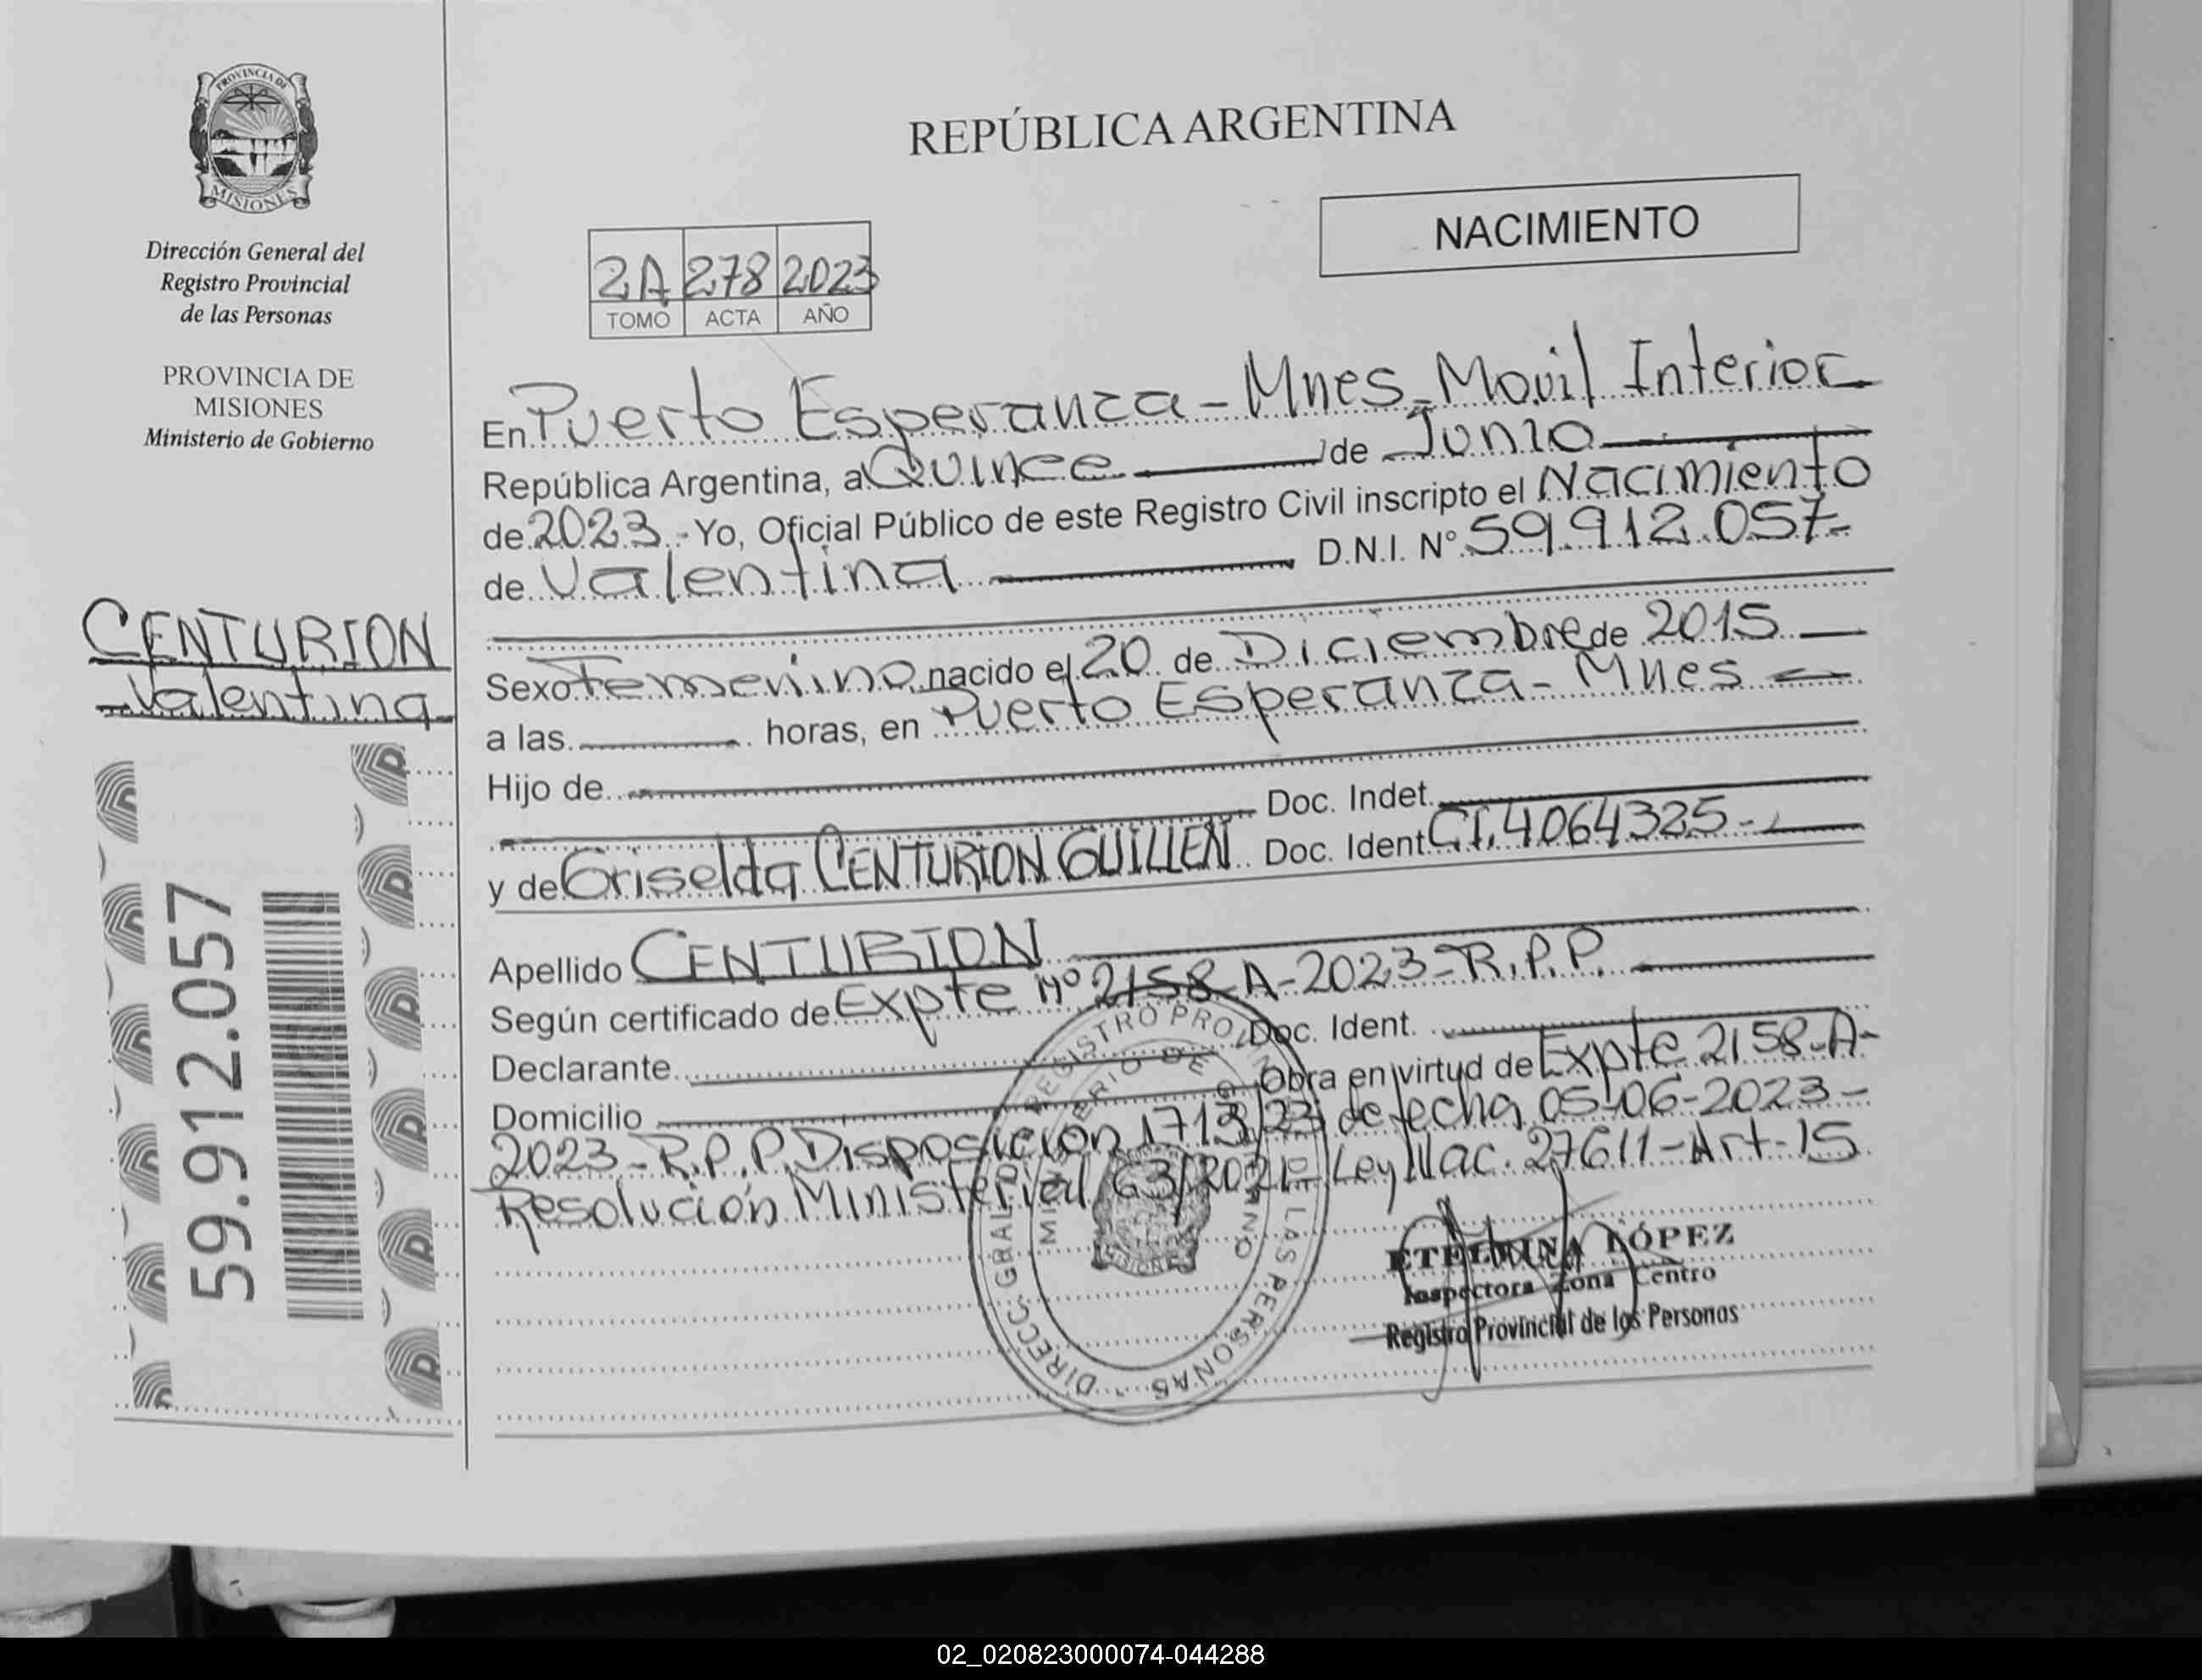 PROVINCIA DE
MISIONES
Dirección General del
Registro Provincial
de las Personas
PROVINCIA DE
MISIONES
Ministerio de Gobierno
CENTURION
Valentina
59.912.057
REPÚBLICA ARGENTINA
NACIMIENTO
2A 278 2023
TOMO ACTA AÑO
En Puerto Esperanza - Mnes - Movil Interior
República Argentina, a Quince de Junio
de 2023.- Yo, Oficial Público de este Registro Civil inscripto el Nacimiento
de Valentina D.N.I. Nº 59.912.057-
Sexo Femenino nacido el 20 de Diciembre de 2015
a las horas, en Puerto Esperanza - Mnes
Hijo de
Doc. Indet.
y de Griselda CENTURION GUILLEN Doc. Ident. CI. 4064325-
Apellido CENTURION
Según certificado de Expte Nº 2158 A-2023-R.P.P.
Declarante Doc. Ident.
Domicilio Obra en virtud de Expte 2158-A-
2023-R.P.P. Disposición 1713/23 de fecha 05-06-2023-
Resolución Ministerial 63/2021- Ley Nac. 27611-Art-15
DIRECC. GRAL. DEL REGISTRO PROVINCIAL DE LAS PERSONAS
MINISTERIO DE GOBIERNO
MISIONES
ETELVINA LÓPEZ
Inspectora Zona Centro
Registro Provincial de los Personas
02_020823000074-044288